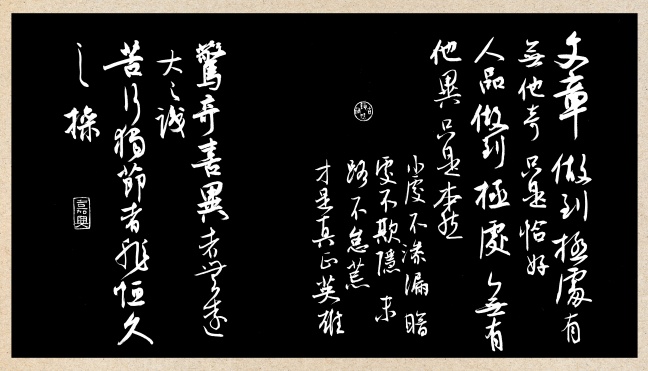 文章做到極處有
無他奇只是恰好
人品做到極處無有
他異只是本然
小處不滲漏暗
處不欺隱末
路不怠荒
才是真正英雄
驚奇喜異者無遠
大之識
苦行獨節者非恒久
之操